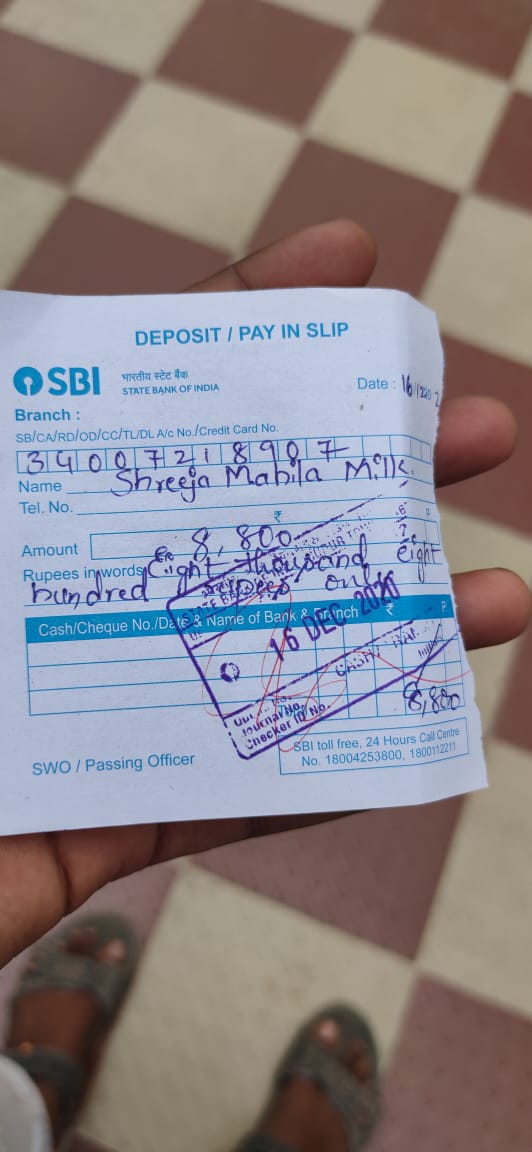 DEPOSIT / PAY IN SLIP
SBI
भारतीय स्टेट बैंक
STATE BANK OF INDIA
Date : 16/12/2020
Branch :
SB/CA/RD/OD/CC/TL/DL A/c No./Credit Card No.
34007218907
Name Shreeja Mahila Milk
Tel. No.
₹ P
Amount 8,800
Rupees in words Eight thousand Eight
hundred rupees only
Cash/Cheque No./Date & Name of Bank & Branch ₹ P
STATE BA
16 DEC 2020
Journal No.
Checker ID No.
8,800
SWO / Passing Officer
SBI toll free, 24 Hours Call Centre
No. 18004253800, 1800112211